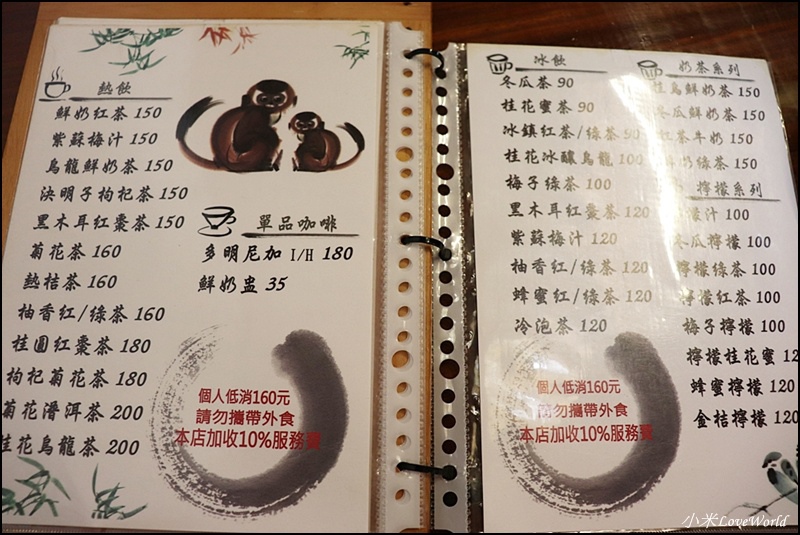 熱飲
鮮奶紅茶 150
紫蘇梅汁 150
烏龍鮮奶茶 150
決明子枸杞茶 150
黑木耳紅棗茶 150
菊花茶 160
熱桔茶 160
柚香紅/綠茶 160
桂圓紅棗茶 180
枸杞菊花茶 180
菊花潽洱茶 200
桂花烏龍茶 200
單品咖啡
多明尼加 I/H 180
鮮奶盅 35
個人低消160元
請勿攜帶外食
本店加收10%服務費
冰飲
冬瓜茶 90
桂花蜜茶 90
冰鎮紅茶/綠茶 90
桂花冰釀烏龍 100
梅子綠茶 100
黑木耳紅棗茶 120
紫蘇梅汁 120
柚香紅/綠茶 120
蜂蜜紅/綠茶 120
冷泡茶 120
個人低消160元
請勿攜帶外食
本店加收10%服務費
奶茶系列
烏鮮奶茶 150
冬瓜鮮奶 150
紅茶牛奶 150
奶綠茶 150
檸檬系列
檬汁 100
冬瓜檸檬 100
檸檬綠茶 100
檸檬紅茶 100
梅子檸檬 100
檸檬桂花蜜 12
蜂蜜檸檬 120
金桔檸檬 120
小米LoveWorld